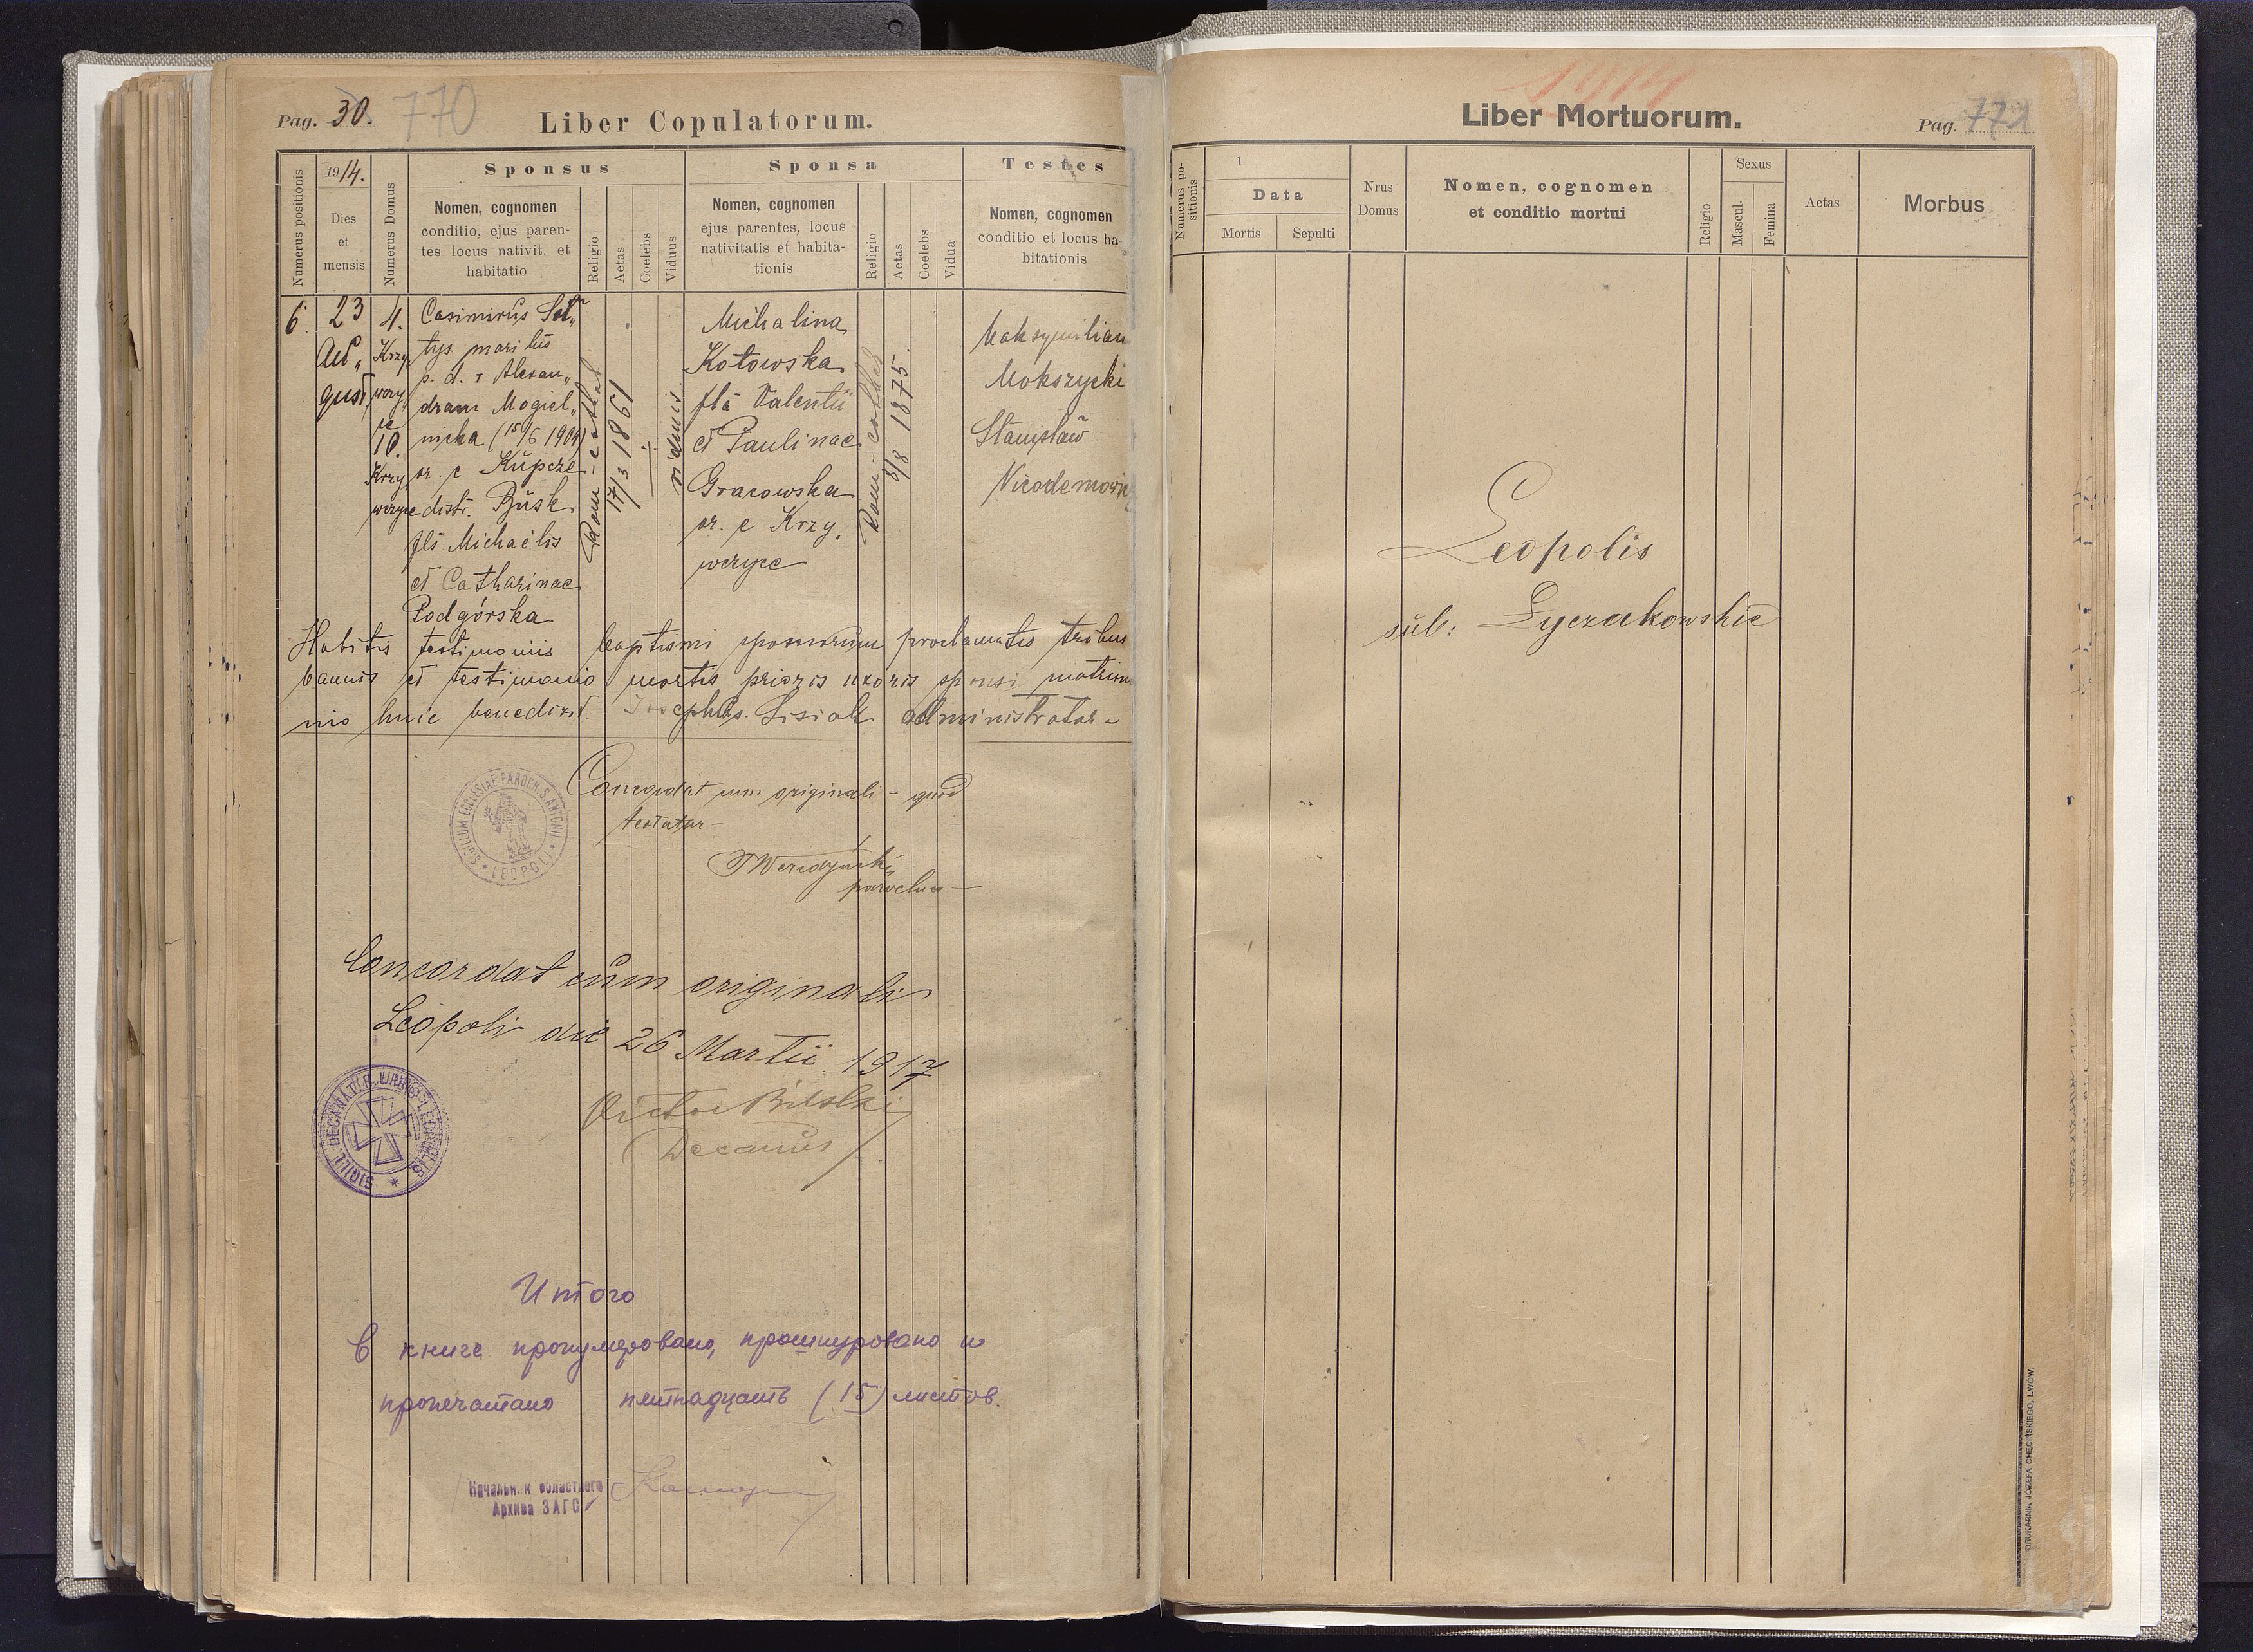 Pag. 30. 770
Liber Copulatorum.
Numerus positionis
1914.
Dies
et
mensis
Numerus Domus
Sponsus
Nomen, cognomen
conditio, ejus paren-
tes locus nativit. et
habitatio
Religio
Aetas
Coelebs
Viduus
Sponsa
Nomen, cognomen
ejus parentes, locus
nativitatis et habita-
tionis
Religio
Aetas
Coelebs
Vidua
Testes
Nomen, cognomen
conditio et locus ha-
bitationis
6.
23
Au„
gust
4.
Krzy„
wczy„
ce
10.
Krzy„
wczyce
Casimirus Soł„
tys maritus
p. d. r Alexan„
dram Mogiel„
nicka (15/6 1904)
or. e Kupcze
distr. Busk
fls Michaëlis
et Catharinae
Podgórska
Rom-cathol
17/3 1861
viduus.
Michalina
Kotowska
fla Valentii
et Paulinae
Gracowska
or. e Krzy„
wczyce
Rom-cathol
8/8 1875.
Maksymilian
Mokszycki
Stanisław
Nicodemowic
Habitis testimoniis baptismi sponsorum proclamatis tribus
bannis et testimonio mortis prioris uxoris sponsi matrimo
nio huic benedixit. Josephus. Lisiak administrator-
SIGILLUM ECCLESIAE PAROCH. S. ANTONI LEOPOLI
Concordat cum originali - quod
testatur-
parochus-
Concordat cum originali
Leopoli die 26 Martii 1917
Victor Bilski
Decanus
SIGILL. DECANAT. R. L. URBIS LEOPOLIS
Итого
В книге пронумеровано, прошнуровано и
пропечатано пятнадцать (15) листов.
Начальник областного
Архива ЗАГС
1914
Liber Mortuorum.
Pag. 771
Numerus po-
sitionis
1
Data
Mortis
Sepulti
Nrus
Domus
Nomen, cognomen
et conditio mortui
Religio
Sexus
Mascul.
Femina
Aetas
Morbus
Leopolis
sub: Lyczakowskie
DRUKARNIA JÓZEFA CHĘCIŃSKIEGO, LWÓW.